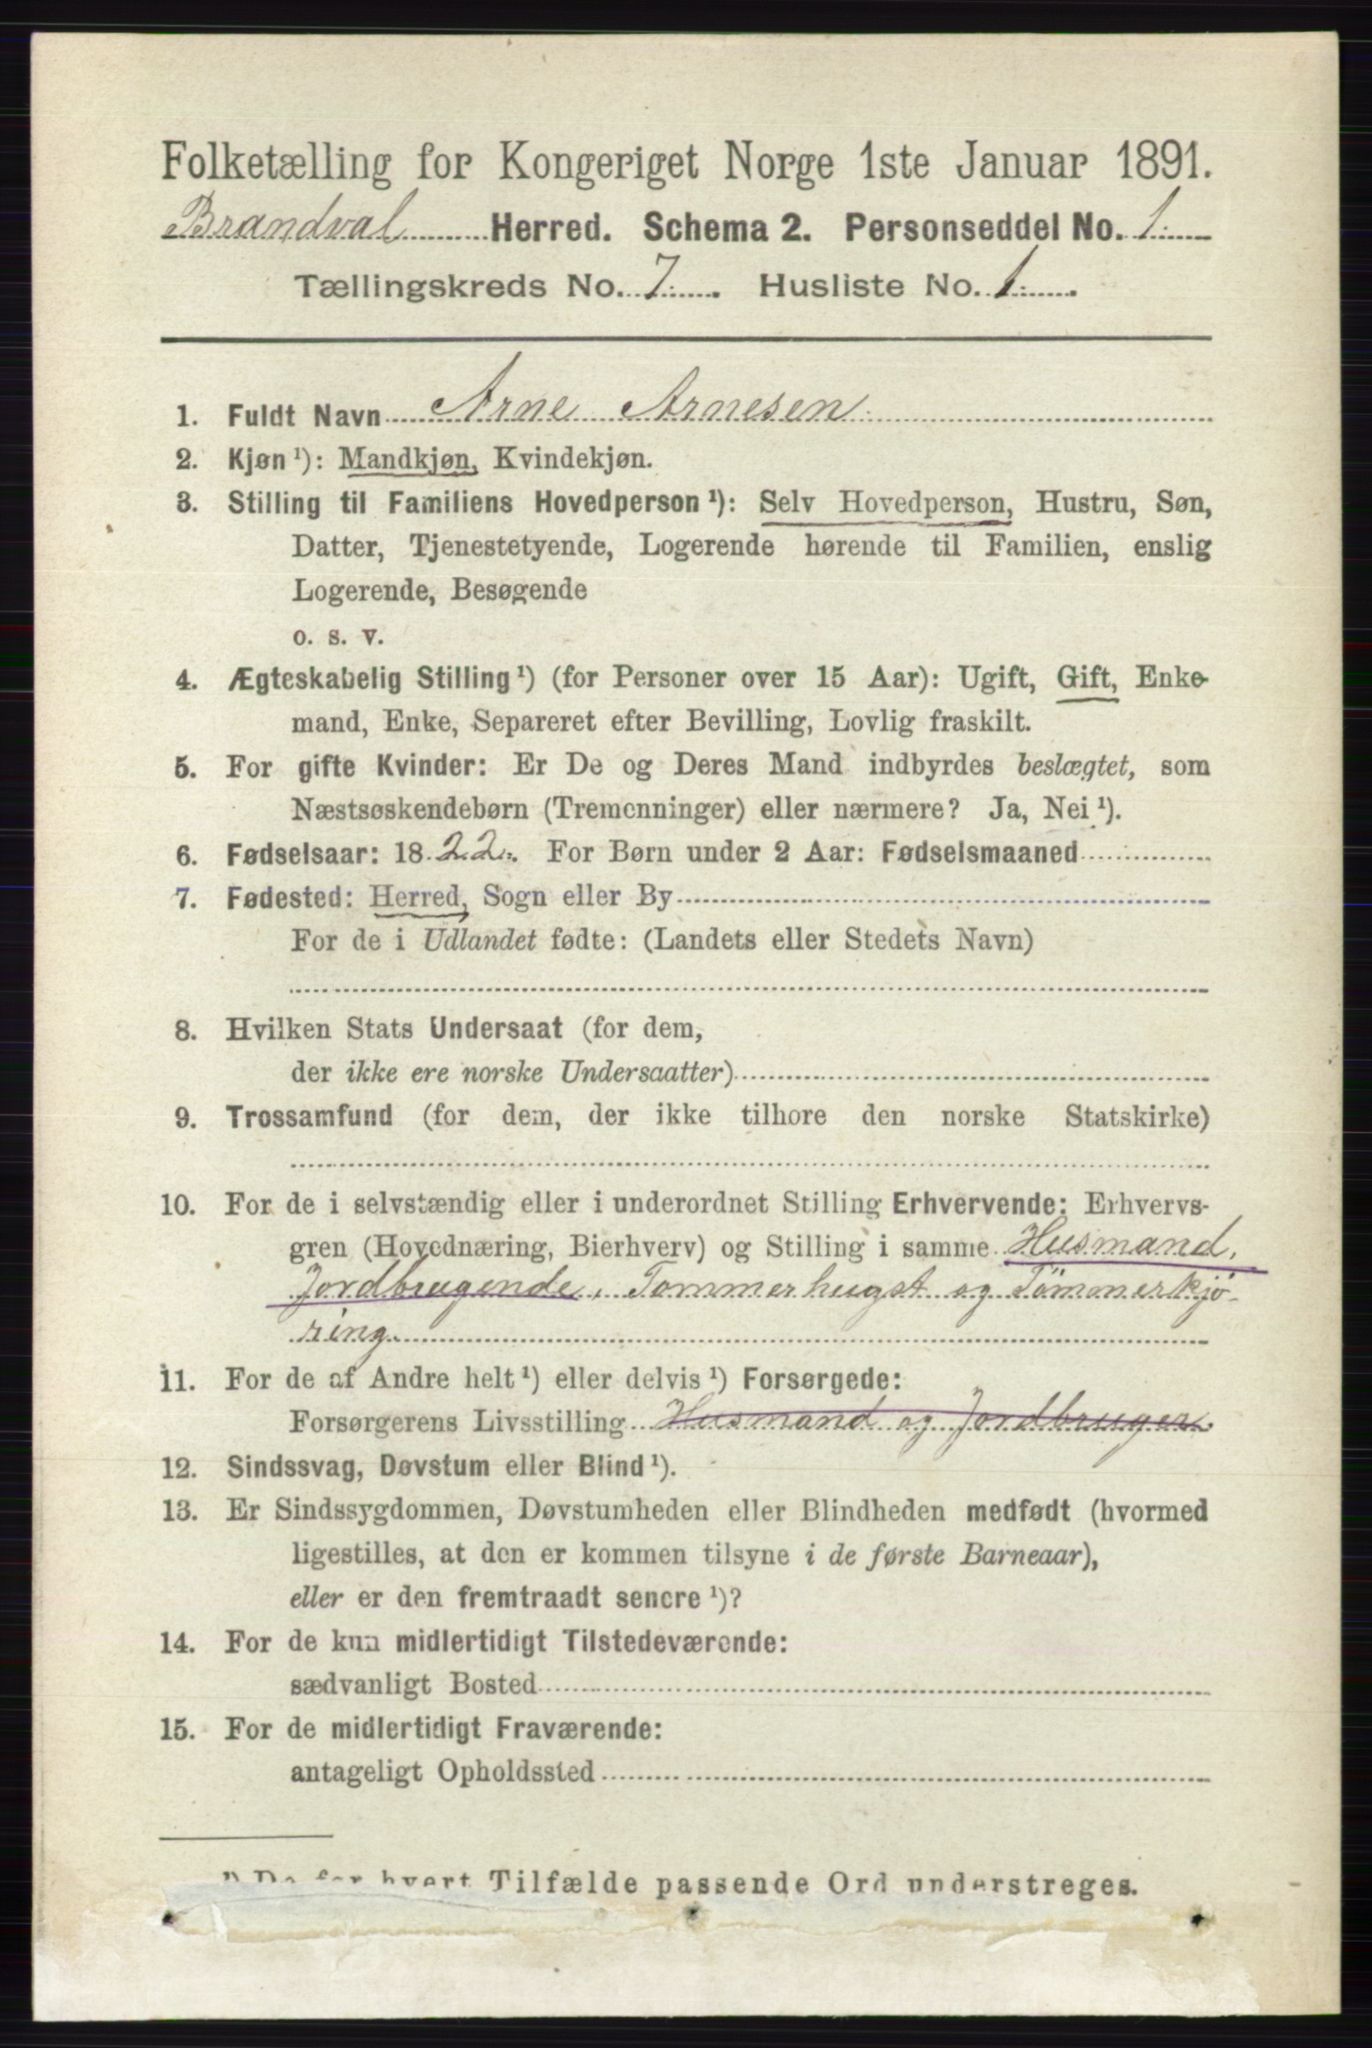 Folketælling for Kongeriget Norge 1ste Januar 1891.
Brandval Herred. Schema 2. Personseddel No. 1.
Tællingskreds No. 7. Husliste No. 1.
1. Fuldt Navn Arne Arnesen.
2. Kjøn ¹): Mandkjøn, Kvindekjøn.
3. Stilling til Familiens Hovedperson ¹): Selv Hovedperson, Hustru, Søn,
Datter, Tjenestetyende, Logerende hørende til Familien, enslig
Logerende, Besøgende
o. s. v.
4. Ægteskabelig Stilling ¹) (for Personer over 15 Aar): Ugift, Gift, Enke-
mand, Enke, Separeret efter Bevilling, Lovlig fraskilt.
5. For gifte Kvinder: Er De og Deres Mand indbyrdes beslægtet, som
Næstsøskendebørn (Tremenninger) eller nærmere? Ja, Nei ¹).
6. Fødselsaar: 1822. For Børn under 2 Aar: Fødselsmaaned
7. Fødested: Herred, Sogn eller By
For de i Udlandet fødte: (Landets eller Stedets Navn)
8. Hvilken Stats Undersaat (for dem,
der ikke ere norske Undersaatter)
9. Trossamfund (for dem, der ikke tilhøre den norske Statskirke)
10. For de i selvstændig eller i underordnet Stilling Erhvervende: Erhvervs-
gren (Hovednæring, Bierhverv) og Stilling i samme Husmand,
Jordbrugende, Tommerhugst og Tömmerkjø-
ring
11. For de af Andre helt ¹) eller delvis ¹) Forsørgede:
Forsørgerens Livsstilling Husmand og Jordbruger.
12. Sindssvag, Døvstum eller Blind ¹).
13. Er Sindssygdommen, Døvstumheden eller Blindheden medfødt (hvormed
ligestilles, at den er kommen tilsyne i de første Barneaar),
eller er den fremtraadt senere ¹)?
14. For de kun midlertidigt Tilstedeværende:
sædvanligt Bosted
15. For de midlertidigt Fraværende:
antageligt Opholdssted
¹) De for hvert Tilfælde passende Ord understreges.